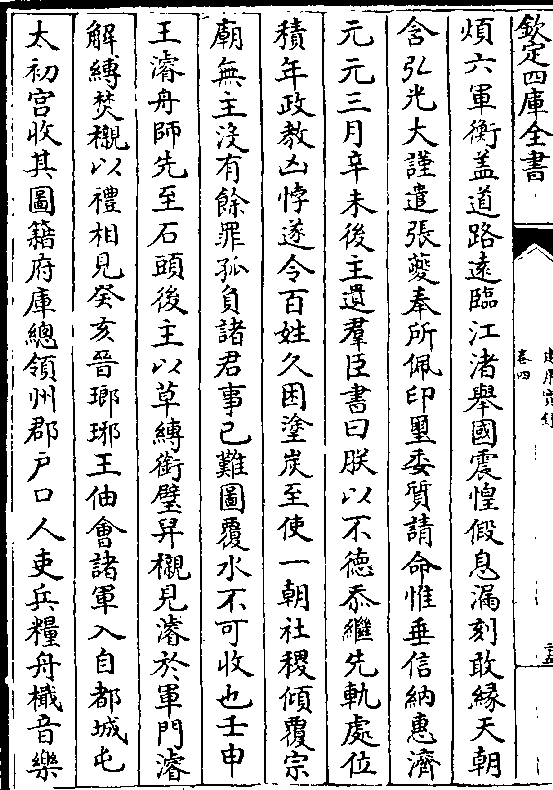 欽定四庫全書
卷四
煩六軍衡盖道路逺臨江渚舉國震惶假息漏刻敢緣天朝
含弘光大謹遣張夔奉所佩印璽委質請命惟垂信納惠濟
元元三月辛未後主遺羣臣書曰朕以不德忝繼先軌處位
積年政教凶悖遂令百姓久困塗炭至使一朝社稷傾覆宗
廟無主没有餘罪孤負諸君事已難圖覆水不可收也壬申
王濬舟師先至石頭後主以草縛銜璧舁櫬見濬於軍門濬
解縛焚櫬以禮相見癸亥晉瑯琊王伷會諸軍入自都城屯
太初宫收其圖籍府庫總領州郡户口人吏兵糧舟檝音樂